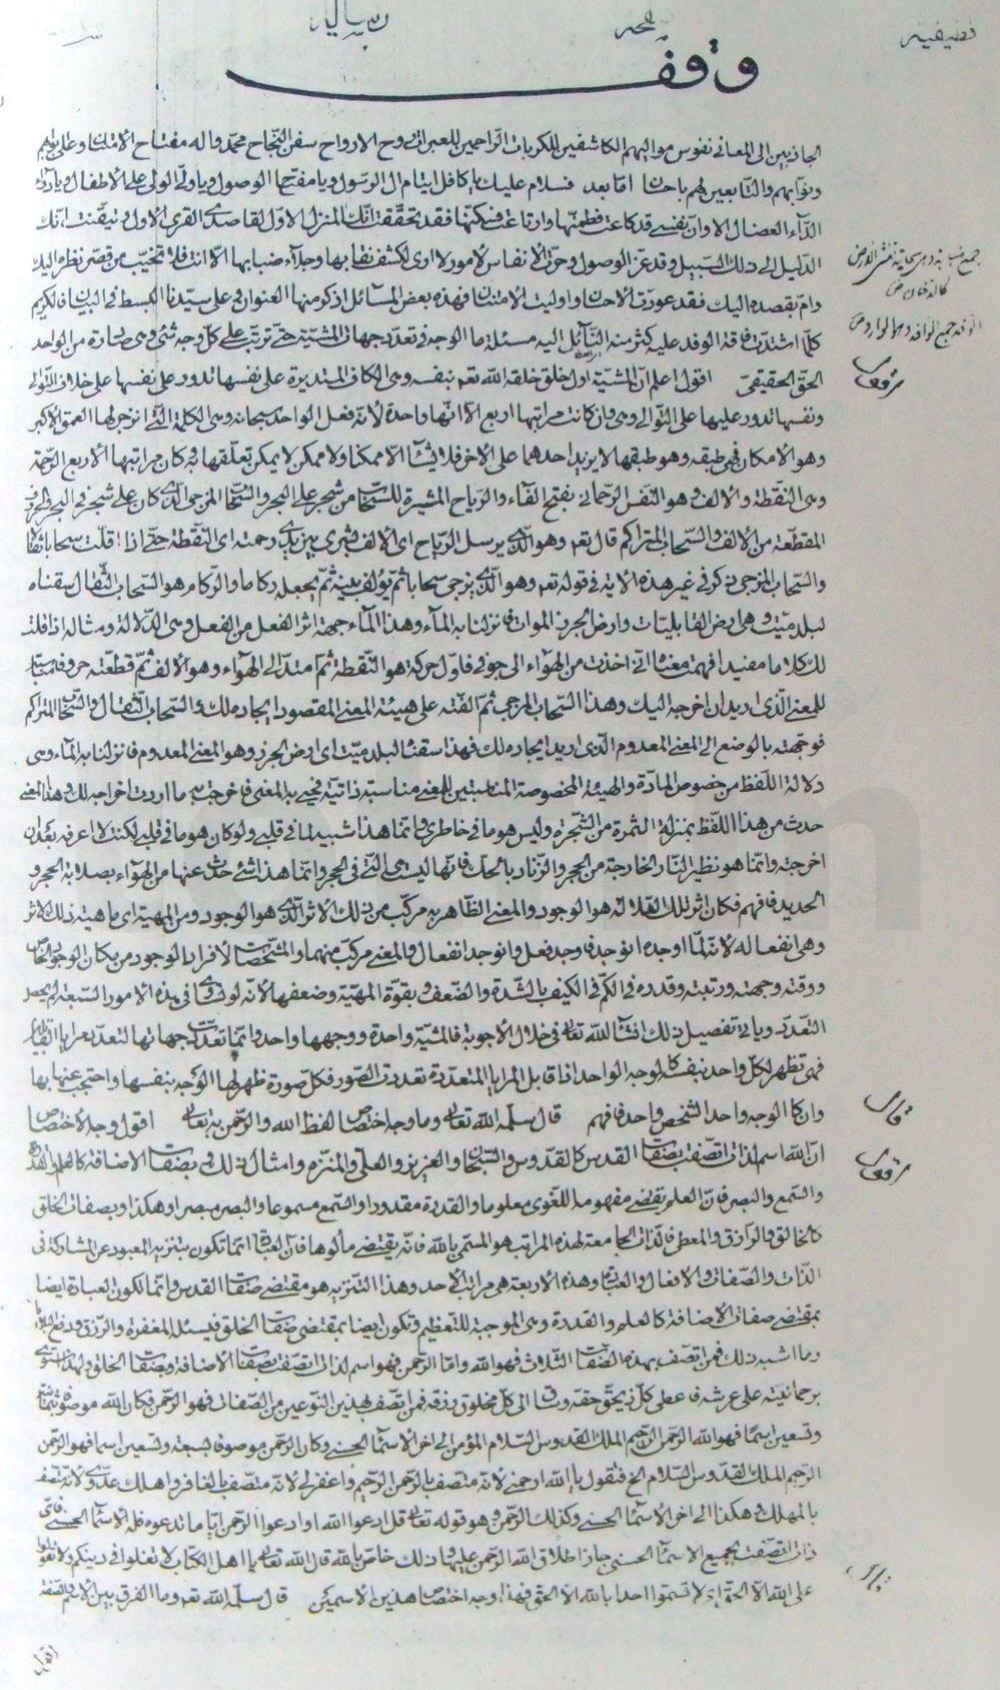 وقف
الجاذبين الى المعاني نفوس مواليهم الكاشفين للكربات الراحمين للعبرات روح الارواح سفن النجاح محمد واله مفتاح الامتنان وعلى
ونوابهم والتابعين لهم باحسان اما بعد فسلام عليك يا كافل ايتام ال الرسول ويا مفتاح الوصول ويا ولي الولي على الاطفال
الداء العضال الا وان نفسي قد كاعت فطمنها وارتاعت فسكنها فقد تحققت انك المنزل الاول لقاصدي القرى الاول وتيقنت انك
الدليل الى ذلك السبيل وقد عز الوصول وحق الانفاس لامور لا ارى لكشف نقابها وجلاء ضبابها الا انت فلا تخيب من قصر نظره اليك
وام بقصده اليك فقد عودت الاحسان واوليت الامتنان فهذه بعض المسائل اذكر منها العنوان وعلى سيدنا البسط في البيان فالكريم
كلما اشتدت فاقة الوفد عليه كثر منه النائل اليه مسئلة ما الوجه في تعدد جهات المشية حتى ترتب على كل وجه شئ وهي صادرة من الواحد
الحق الحقيقي اقول اعلم ان المشية اول خلق خلقه الله تعم بنفسه وهي الكاف المستديرة على نفسها تدور على نفسها على خلاف التوالي
ونفسها تدور عليها على التوالي وهي وان كانت مراتبها اربع الا انها واحدة لانه فعل الواحد سبحانه وهي الكلمة التي انزجر لها العمق الاكبر
وهو الامكان فهي طبقه وهو طبقها لا يزيد احدهما على الاخر فلا يشاء الا ممكنا ولا ممكن لا يمكن تعلقها به كان مراتبها الاربع الرحمة
وهي النقطة والالف وهو النفس الرحماني بفتح الفاء والرياح المثيرة للسحاب من شجر على البحر والسحاب المزجى الذي كان على شجر في البحر
المقطعة من الالف والسحاب المتراكم قال تعم وهو الذي يرسل الرياح اي الالف بشرى بين يدي رحمته اي النقطة حتى اذا اقلت سحابا ثقالا
والسحاب المزجى ذكر في غير هذه الاية في قوله تعم وهو الذي يزجى سحابا ثم يؤلف بينه ثم يجعله ركاما والركام هو السحاب الثقال سقناه
لبلد ميت وهي ارض القابليات وارض الجرز الموات فانزلنا به الماء وهذا الماء جهة اثر الفعل من الفعل وهي الدلالة ومثاله اذا قلت
لك كلاما مفيدا فهمت معناه اني اخذت من الهواء الى جوفي فاول حركة هو النقطة ثم امتد الى الهواء وهو الالف ثم قطعته حروفا مناسبا
للمعنى الذي اريد ان اخرجه اليك وهذا السحاب المزجى ثم الفته على هيئة المعنى المقصود ايجاده لك وهو السحاب الثقال والسحاب المتراكم
فوجهته بالوضع الى المعنى المعدوم الذي اريد ايجاده لك فهذا سقناه لبلد ميت اي ارض الجرز وهو المعنى المعدوم فانزلنا به الماء وهي
دلالة اللفظ من خصوص المادة والهيئة المخصوصة المناسبتين للمعنى مناسبة ذاتية فحيي به المعنى فاخرجت به ما اردت اخراجه لك وهذا المعنى
حدث من هذا اللفظ بمنزلة الثمرة من الشجرة وليس هو ما في خاطري وانما هذا شبيه لما في قلبي ولو كان هو ما في قلبي لكنت لا اعرفه بعد ان
اخرجته وانما هو نظير النار الخارجة من الحجر والزناد بالحك فانها ليست هي التي في الحجر وانما هذا شئ حدث عنها من الهواء بصلابة الحجر و
الحديد فافهم فكان اثر تلك الدلالة هو الوجود والمعنى الظاهر به مركب من ذلك الاثر الذي هو الوجود ومن المهية اي ماهية ذلك الاثر
وهي انفعاله لانه لما اوجده انوجد فاوجد فعل وانوجد انفعال والمعنى مركب منهما والمشخصات لافراد الوجود من مكان الوجود الخاص
ووقته وجهته ورتبته وقدره في الكم في الكيف بالشدة والضعف وبقوة المهية وضعفها لانه لو تساوى في هذه الامور السبعة لم يحصل
التعدد وياتي تفصيل ذلك انشاء الله تعالى في خلال الاجوبة فالمشية واحدة ووجهها واحد وانما تعددت جهاتها لتعدد مرايا القوابل
فهي تظهر لكل واحد بنفسه كالوجه الواحد اذا قابل المرايا المتعددة تعددت الصور فكل صورة ظهر لها الوجه بنفسها واحتجب عنها بها
وان كان الوجه واحدا لشخص واحد فافهم قال سلمه الله تعالى وما وجه اختصاص لفظ الله والرحمن به تعالى اقول وجه الاختصاص
ان الله اسم لذات اتصفت بصفات القدس كالقدوس والسبحان والعزيز والعلي والمنزه وامثال ذلك وبصفات الاضافة كالعلم والقدرة
والسمع والبصر فان العلم يقتضي مفهومه اللغوي معلوما والقدرة مقدورا والسمع مسموعا والبصر مبصرا وهكذا وبصفات الخلق
كالخالق والرازق والمعطي فالذات الجامعة لهذه المراتب هو المسمى بالله فانه يقتضي مألوها فان العبادة انما تكون بتنزيه المعبود عن المشاركة في
الذات والصفات والافعال والعبادة وهذه الاربعة هي مراتب الاحد وهذا التنزيه هو مقتضى صفات القدس وانما تكون العبادة ايضا
بمقتضى صفات الاضافة كالعلم والقدرة وهي الموجبة للتعظيم وتكون ايضا بمقتضى صفات الخلق فيسئله المغفرة والرزق ودفع البلاء
وما اشبه ذلك فمن اتصف بهذه الصفات الثلاث فهو الله واما الرحمن فهو اسم لذات اتصفت بصفات الاضافة وبصفات الخلق ولهذا استوى
برحمانيته على عرشه فاعطى كل ذي حق حقه وساق الى كل مخلوق رزقه فمن اتصف بهذين النوعين من الصفات فهو الرحمن فكان الله موصوفا بثمانية
وتسعين اسما فهو الله الرحمن الرحيم الملك القدوس السلام المؤمن الى اخر الاسماء الحسنى وكان الرحمن موصوفا بسبعة وتسعين اسما فهو الرحمن
الرحيم الملك القدوس السلام الخ فتقول يا الله ارحمني لانه متصف بالرحمن الرحيم واغفر لي لانه متصف بالغافر واهلك عدوي لانه متصف
بالمهلك وهكذا الى اخر الاسماء الحسنى وكذلك الرحمن وهو قوله تعالى قل ادعوا الله او ادعوا الرحمن ايا ما تدعوا فله الاسماء الحسنى فاي
ذات اتصفت بجميع الاسماء الحسنى جاز اطلاق الله الرحمن عليها وذلك خاص بالله قال الله تعالى يا اهل الكتاب لا تغلوا في دينكم ولا تقولوا
على الله الا الحق اي لا تسموا احدا بالله الا الحق فهذا وجه اختصاص هذين الاسمين قال سلمه الله تعم وما الفرق بين الاسم والصفة